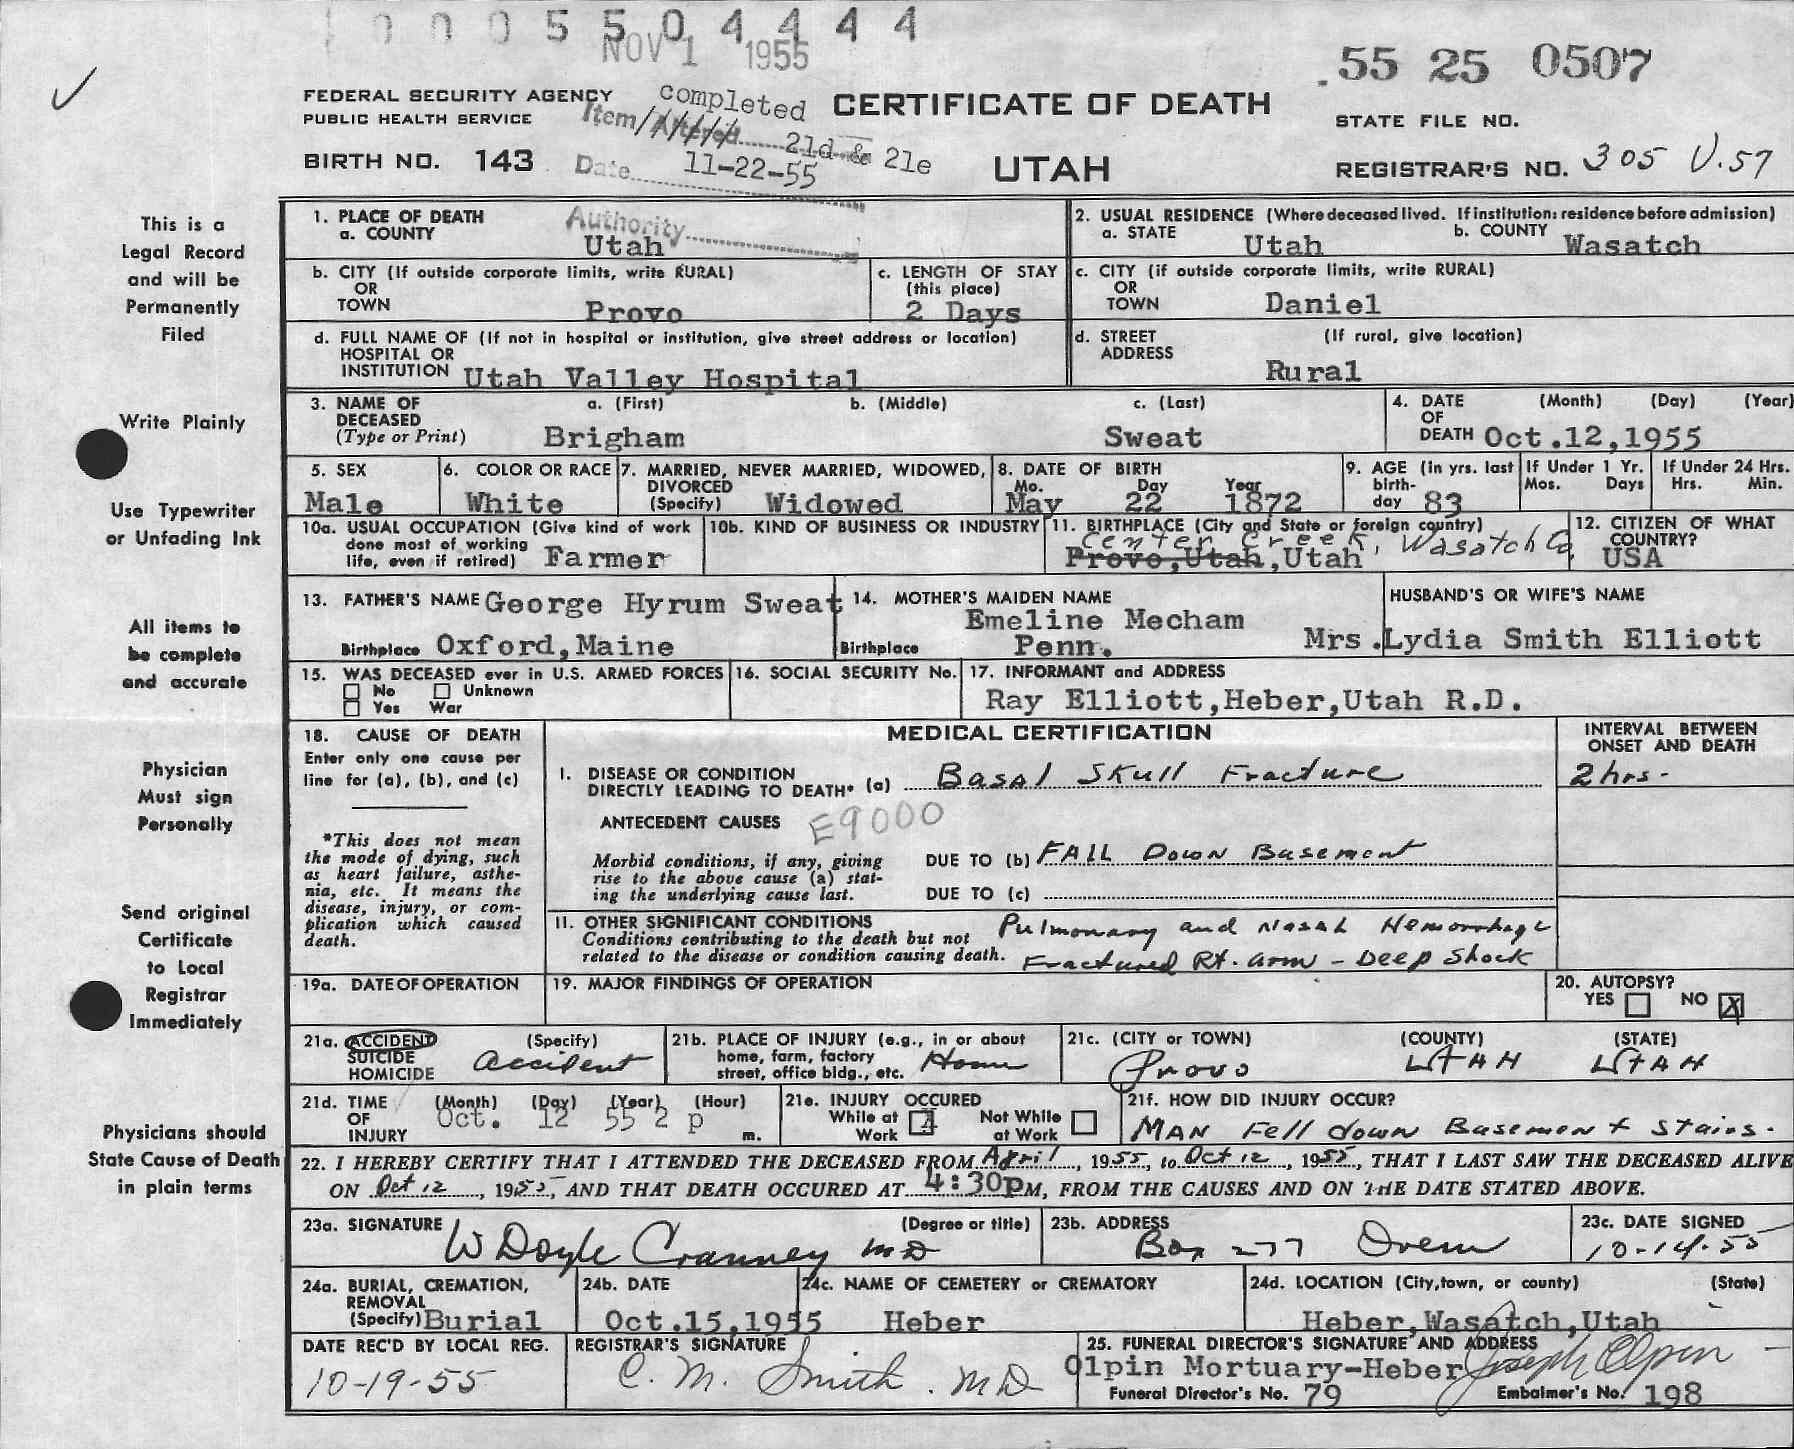 0 0 0 5 5 0 4 4 4 4
NOV 1 1955
.55 25 0507
FEDERAL SECURITY AGENCY
PUBLIC HEALTH SERVICE
completed
Item Altered 21d & 21e
Date 11-22-55
Authority
CERTIFICATE OF DEATH
STATE FILE NO.
BIRTH NO. 143
UTAH
REGISTRAR'S NO. 305 V.57
This is a
Legal Record
and will be
Permanently
Filed
Write Plainly
Use Typewriter
or Unfading Ink
All items to
be complete
and accurate
Physician
Must sign
Personally
Send original
Certificate
to Local
Registrar
Immediately
Physicians should
State Cause of Death
in plain terms
1. PLACE OF DEATH
a. COUNTY Utah
2. USUAL RESIDENCE (Where deceased lived. If institution: residence before admission)
a. STATE Utah b. COUNTY Wasatch
b. CITY (If outside corporate limits, write RURAL)
OR
TOWN Provo
c. LENGTH OF STAY
(this place)
2 Days
c. CITY (if outside corporate limits, write RURAL)
OR
TOWN Daniel
d. FULL NAME OF (If not in hospital or institution, give street address or location)
HOSPITAL OR
INSTITUTION Utah Valley Hospital
d. STREET (If rural, give location)
ADDRESS
Rural
3. NAME OF a. (First) b. (Middle) c. (Last)
DECEASED
(Type or Print) Brigham Sweat
4. DATE (Month) (Day) (Year)
OF
DEATH Oct.12,1955
5. SEX
Male
6. COLOR OR RACE
White
7. MARRIED, NEVER MARRIED, WIDOWED,
DIVORCED
(Specify) Widowed
8. DATE OF BIRTH
Mo. Day Year
May 22 1872
9. AGE (in yrs. last
birth-
day 83
If Under 1 Yr.
Mos. Days
If Under 24 Hrs.
Hrs. Min.
10a. USUAL OCCUPATION (Give kind of work
done most of working
life, even if retired) Farmer
10b. KIND OF BUSINESS OR INDUSTRY
11. BIRTHPLACE (City and State or foreign country)
Center Creek, Wasatch Co
Provo,Utah,Utah
12. CITIZEN OF WHAT
COUNTRY?
USA
13. FATHER'S NAME George Hyrum Sweat
Birthplace Oxford,Maine
14. MOTHER'S MAIDEN NAME
Emeline Mecham
Birthplace Penn.
HUSBAND'S OR WIFE'S NAME
Mrs.Lydia Smith Elliott
15. WAS DECEASED ever in U.S. ARMED FORCES
No Unknown
Yes War
16. SOCIAL SECURITY No.
17. INFORMANT and ADDRESS
Ray Elliott,Heber,Utah R.D.
18. CAUSE OF DEATH
Enter only one cause per
line for (a), (b), and (c)
*This does not mean
the mode of dying, such
as heart failure, asthe-
nia, etc. It means the
disease, injury, or com-
plication which caused
death.
MEDICAL CERTIFICATION
INTERVAL BETWEEN
ONSET AND DEATH
I. DISEASE OR CONDITION
DIRECTLY LEADING TO DEATH* (a) Basal Skull Fracture
2 hrs-
ANTECEDENT CAUSES E9000
Morbid conditions, if any, giving
rise to the above cause (a) stat-
ing the underlying cause last.
DUE TO (b) FALL Down Basement
DUE TO (c)
II. OTHER SIGNIFICANT CONDITIONS
Conditions contributing to the death but not
related to the disease or condition causing death.
Pulmonary and Nasal Hemorrhage
Fractured Rt. arm - Deep Shock
19a. DATE OF OPERATION
19. MAJOR FINDINGS OF OPERATION
20. AUTOPSY?
YES NO X
21a. ACCIDENT (Specify)
SUICIDE
HOMICIDE
accident
21b. PLACE OF INJURY (e.g., in or about
home, farm, factory
street, office bldg., etc. Home
21c. (CITY or TOWN) (COUNTY) (STATE)
Provo UTAH UTAH
21d. TIME (Month) (Day) (Year) (Hour)
OF
INJURY Oct. 12 55 2 p m.
21e. INJURY OCCURED
While at Work X Not While at Work
21f. HOW DID INJURY OCCUR?
MAN Fell down Basement stairs.
22. I HEREBY CERTIFY THAT I ATTENDED THE DECEASED FROM April, 1955, to Oct 12, 1955, THAT I LAST SAW THE DECEASED ALIVE
ON Oct 12, 1955, AND THAT DEATH OCCURED AT 4:30pM, FROM THE CAUSES AND ON THE DATE STATED ABOVE.
23a. SIGNATURE (Degree or title)
W Doyle Cranney MD
23b. ADDRESS
Box 277 Orem
23c. DATE SIGNED
10-14-55
24a. BURIAL, CREMATION,
REMOVAL
(Specify) Burial
24b. DATE
Oct.15,1955
24c. NAME OF CEMETERY or CREMATORY
Heber
24d. LOCATION (City,town, or county) (State)
Heber,Wasatch,Utah
DATE REC'D BY LOCAL REG.
10-19-55
REGISTRAR'S SIGNATURE
C. M. Smith. MD
25. FUNERAL DIRECTOR'S SIGNATURE AND ADDRESS
Olpin Mortuary-Heber Joseph Olpin
Funeral Director's No. 79 Embalmer's No. 198